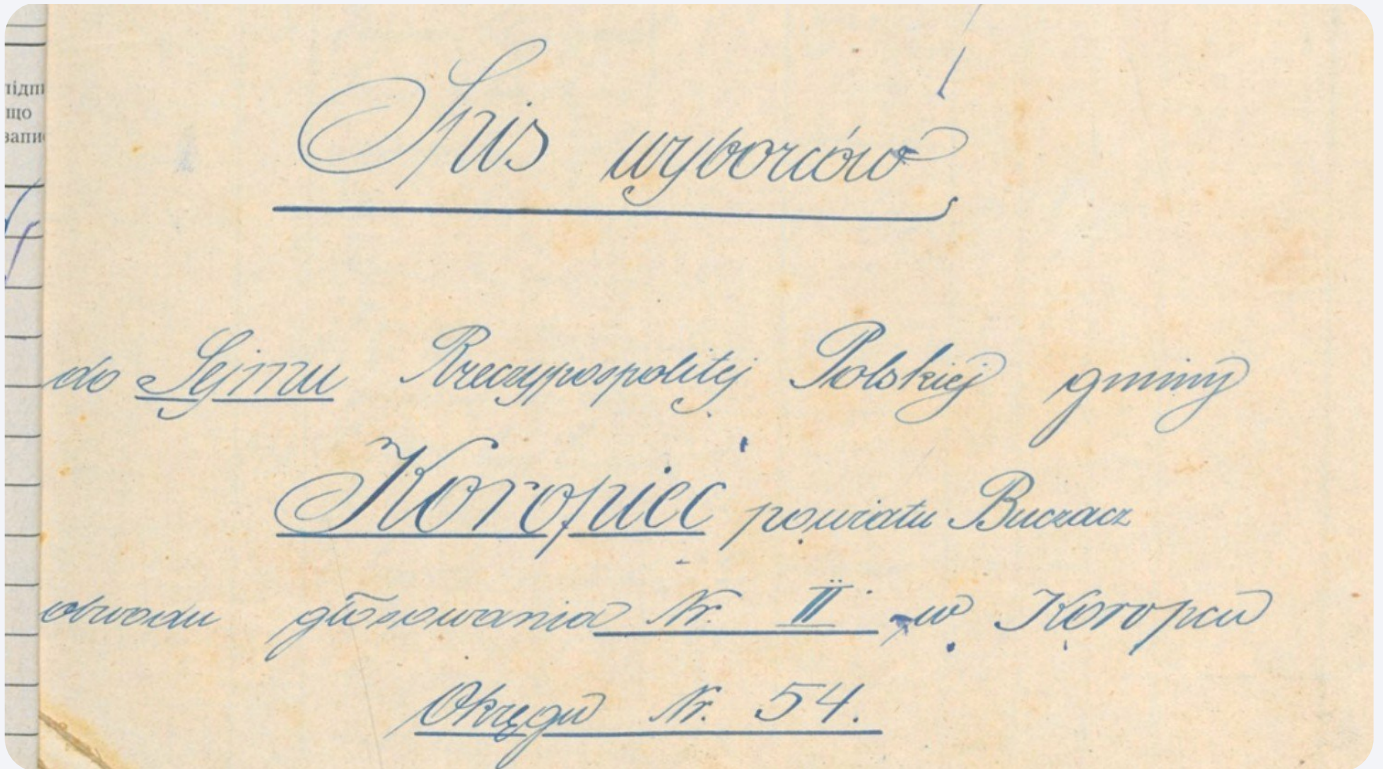 підп
що
запис
Spis wyborców
do Sejmu Rzeczypospolitej Polskiej gminy
Koropiec powiatu Buczacz
obwodu głosowania Nr. II w Koropcu
Okręgu Nr. 54.